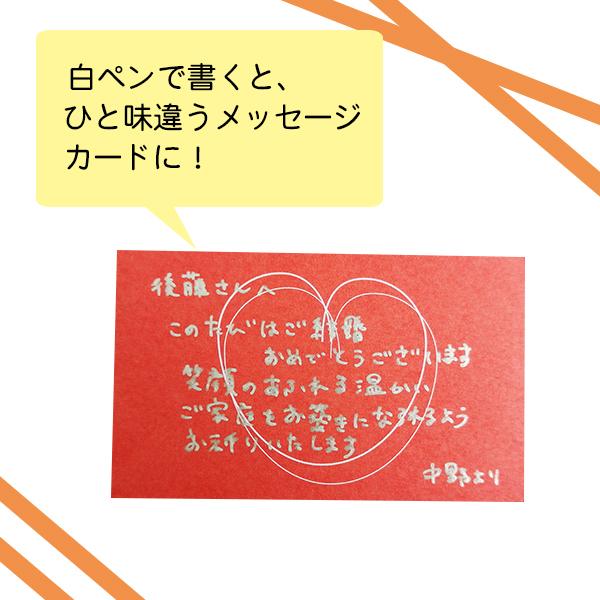 白ペンで書くと、
ひと味違うメッセージ
カードに！
後藤さんへ
このたびはご結婚
おめでとうございます
笑顔のあふれる温かい
ご家庭をお築きになられるよう
お祈りいたします
中野より